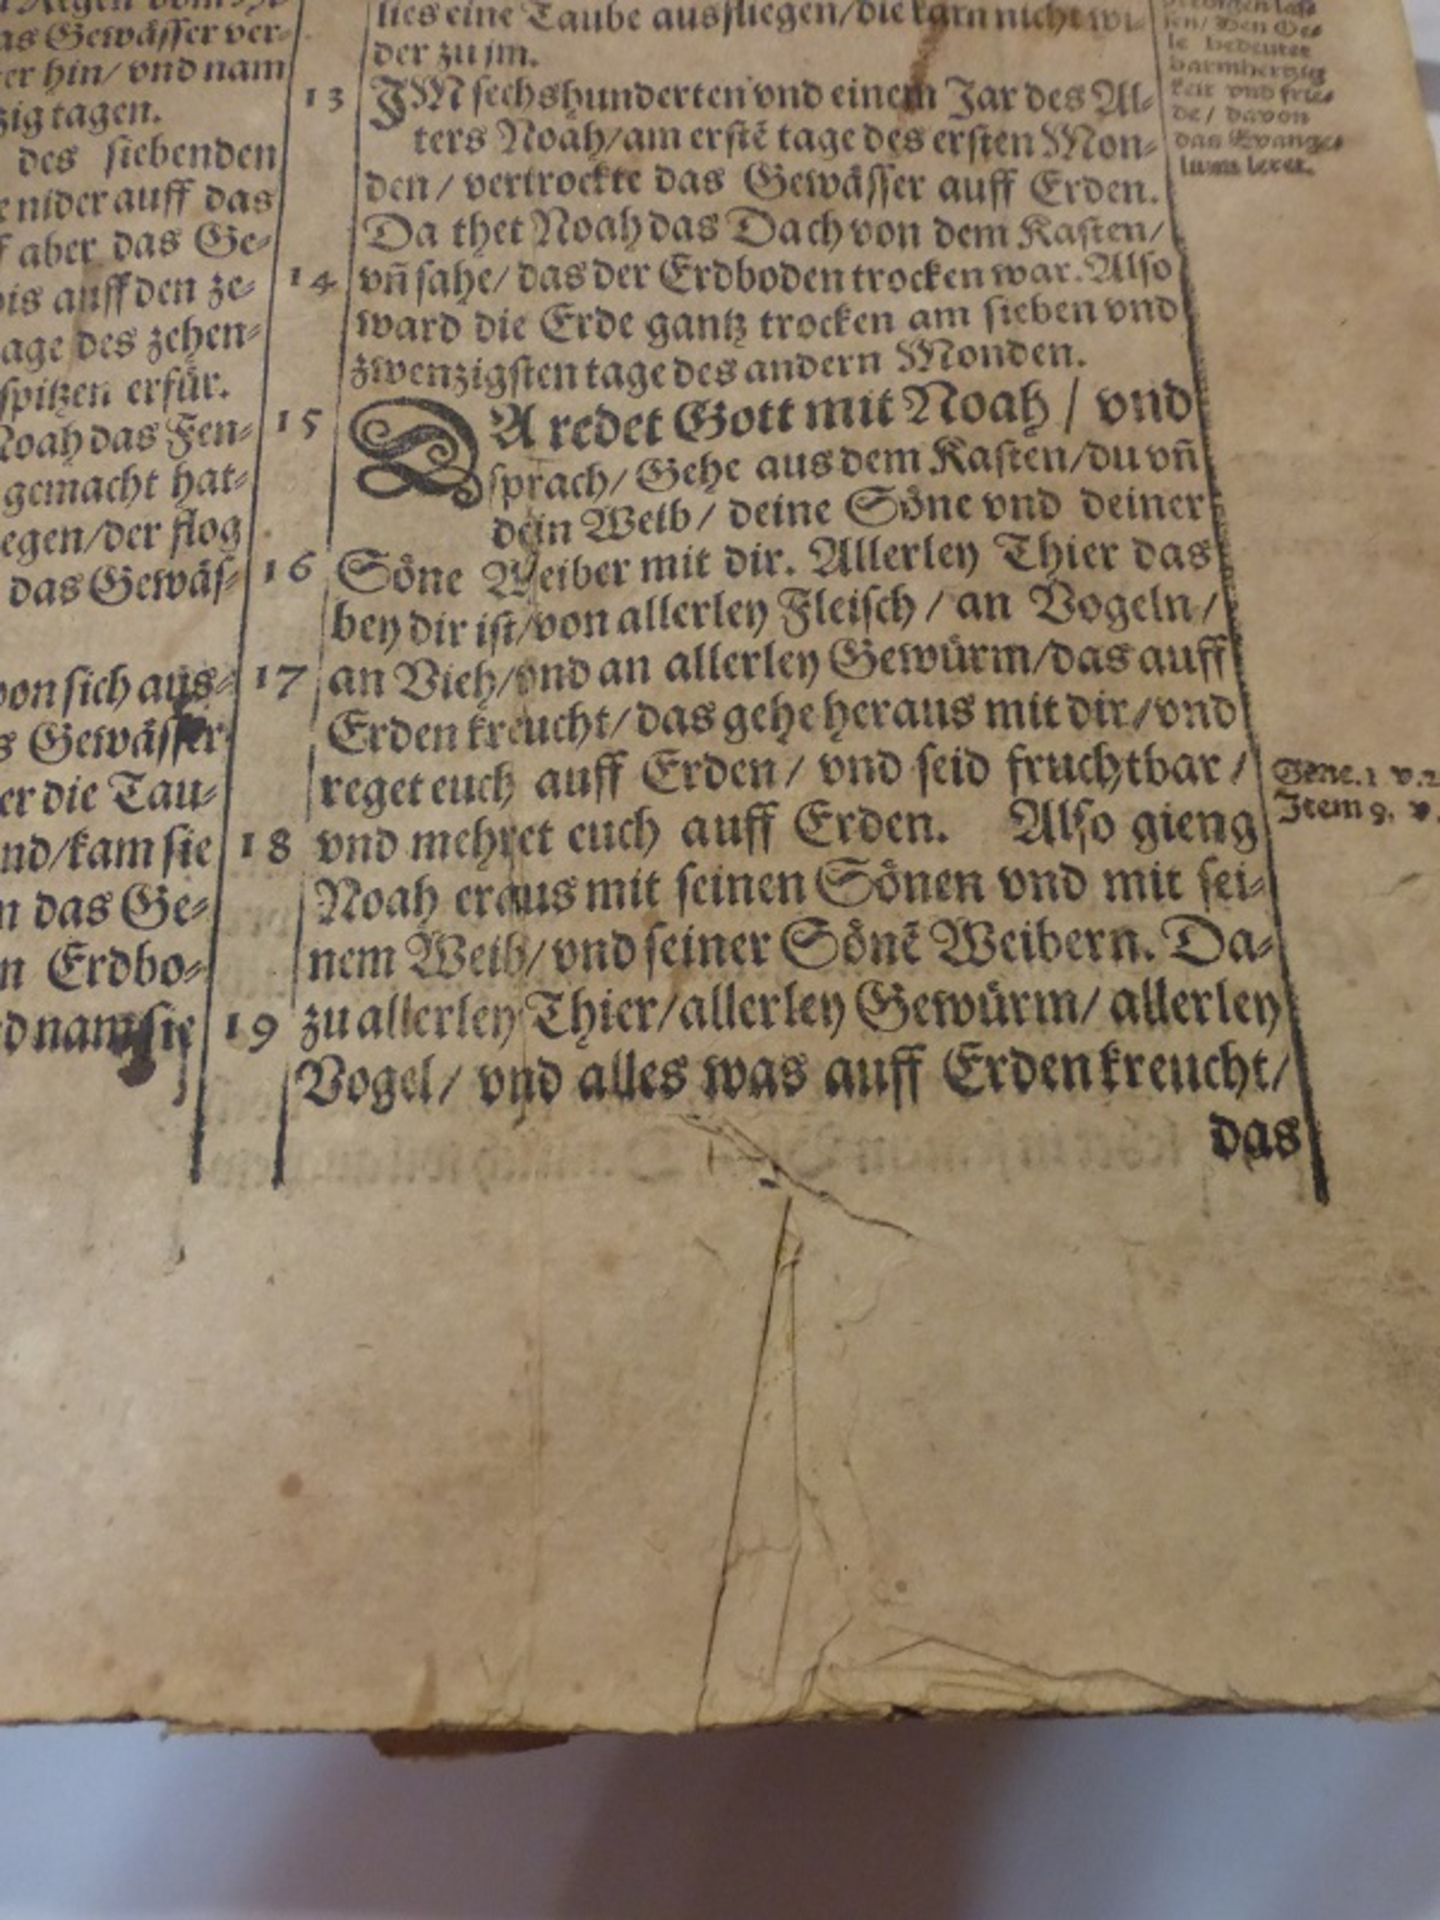 as Gewässer ver-
er hin/ vnd nam
zig tagen.
des siebenden
nider auff das
aber das Ge-
bis auff den ze-
age des zehen-
spitzen erfür.
Noah das Fen-
gemacht hat-
egen/der flog
das Gewäs-
von sich aus-
s Gewässer
er die Tau-
nd/kam sie
n das Ge-
n Erdbo-
d nam sie
lies eine Taube ausfliegen/die kam nicht wi-
der zu jm.
13 JM sechshunderten vnd einem Jar des Al-
ters Noah/am erstẽ tage des ersten Mon-
den/ vertrockte das Gewässer auff Erden.
Da thet Noah das Dach von dem Kasten/
14 vñ sahe/ das der Erdboden trocken war. Also
ward die Erde gantz trocken am sieben vnd
zwenzigsten tage des andern Monden.
15 DA redet Gott mit Noah / vnd
sprach/ Gehe aus dem Kasten/du vñ
dein Weib/ deine Söne vnd deiner
16 Söne Weiber mit dir. Allerley Thier das
bey dir ist/von allerley Fleisch / an Vogeln/
17 an Vieh/vnd an allerley Gewürm/das auff
Erden kreucht/das gehe heraus mit dir/vnd
reget euch auff Erden/ vnd seid fruchtbar/
18 vnd mehret euch auff Erden. Also gieng
Noah eraus mit seinen Sönen vnd mit sei-
nem Weib/vnd seiner Sönẽ Weibern. Da-
19 zu allerley Thier/allerley Gewürm/ allerley
Vogel/ vnd alles was auff Erden kreucht/
das
le bedeutet
barmhertzig
keit vnd frie-
de/ davon
das Evange-
lium leret.
Gene.1 v.2
Item 9. v.